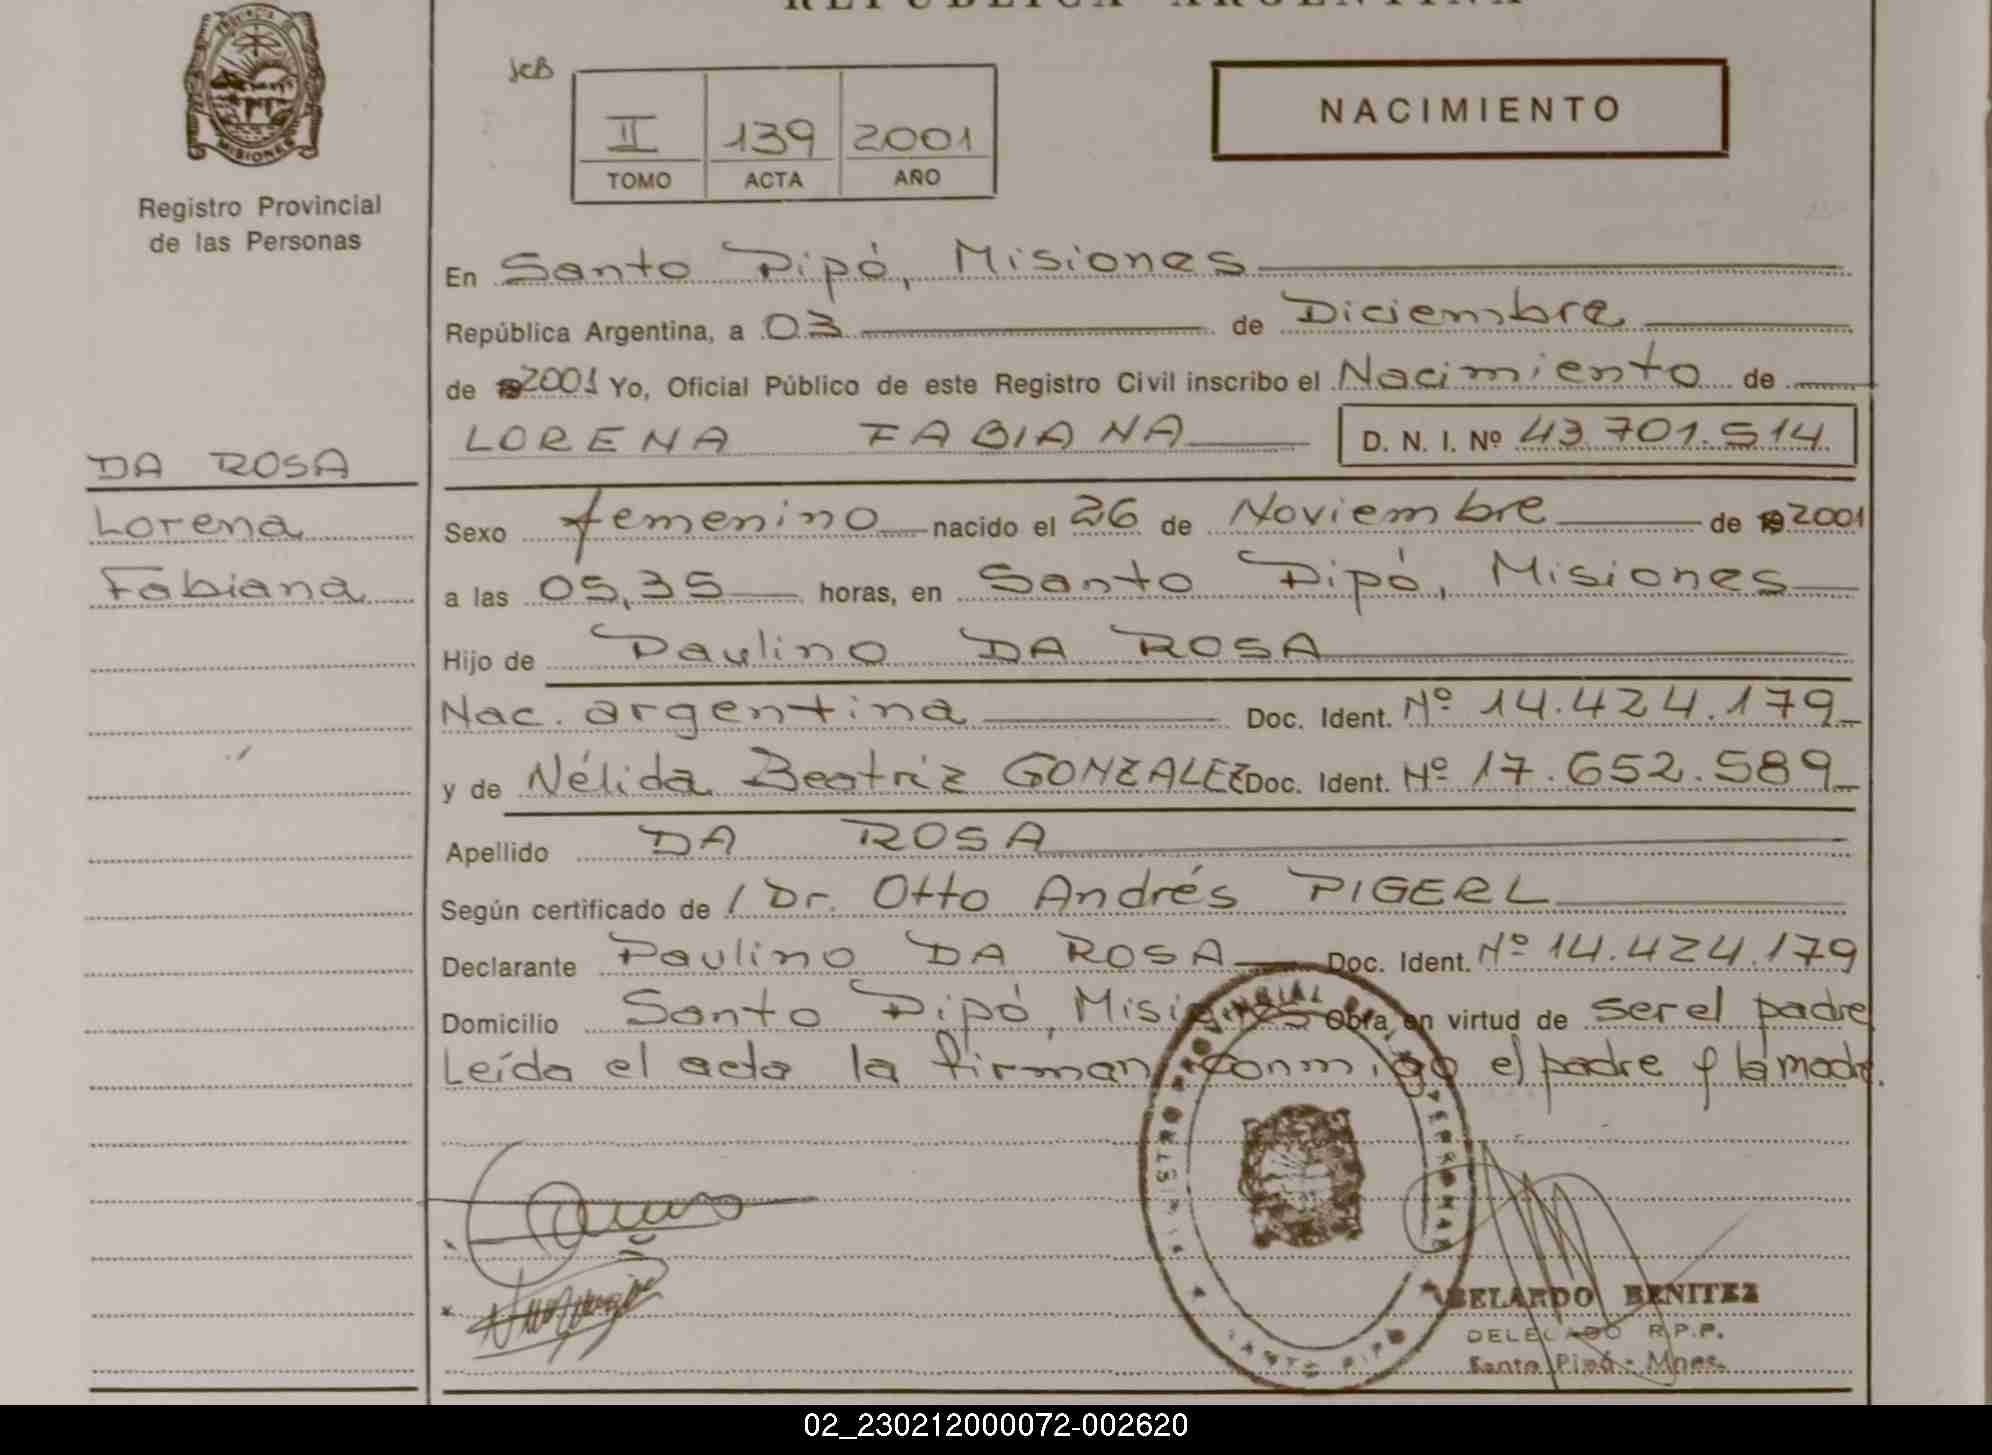 REPUBLICA ARGENTINA
PROVINCIA DE
MISIONES
Registro Provincial
de las Personas
JCB
II 139 2001
TOMO ACTA AÑO
NACIMIENTO
En Santo Pipó, Misiones
República Argentina, a 03 de Diciembre
de 2001 Yo, Oficial Público de este Registro Civil inscribo el Nacimiento de
LORENA FABIANA D. N. I. Nº 43.701.514
DA ROSA
Lorena
Fabiana
Sexo femenino nacido el 26 de Noviembre de 192001
a las 05,35 horas, en Santo Pipó, Misiones
Hijo de Paulino DA ROSA
Nac. argentina Doc. Ident. Nº 14.424.179
y de Nélida Beatriz GONZALEZ Doc. Ident. Nº 17.652.589
Apellido DA ROSA
Según certificado de / Dr. Otto Andrés PIGERL
Declarante Paulino DA ROSA Doc. Ident. Nº 14.424.179
Domicilio Santo Pipó, Misiones Obra en virtud de ser el padre
Leída el acta la firman conmigo el padre y la madre.
REGISTRO PROVINCIAL DE LAS PERSONAS
SANTO PIPO
ABELARDO BENITEZ
DELEGADO R.P.P.
Santo Pipó - Mnes.
02_230212000072-002620